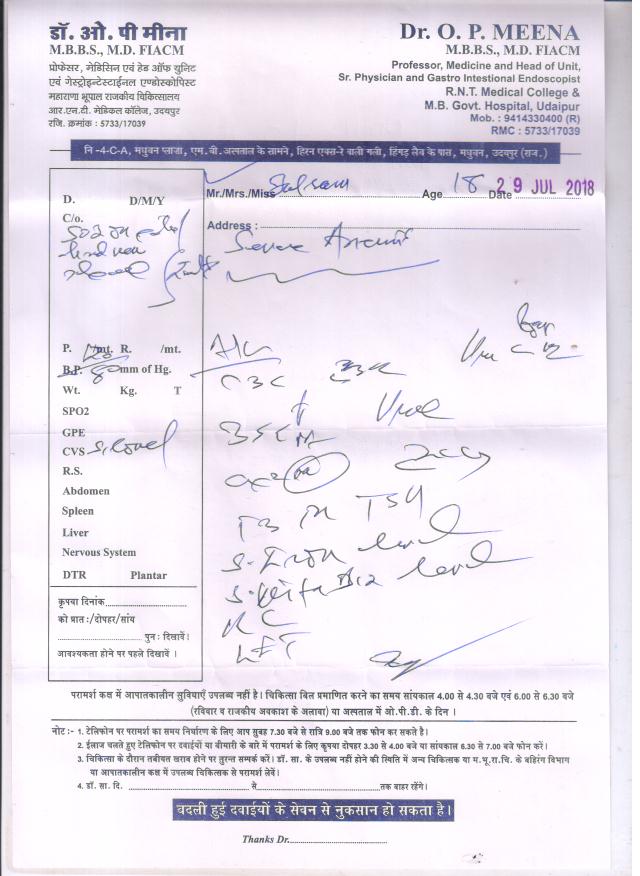 डॉ. ओ. पी मीना
M.B.B.S., M.D. FIACM
प्रोफेसर, मेडिसिन एवं हेड ऑफ युनिट
एवं गेस्ट्रोइन्टेस्टाईनल एण्डोस्कोपिस्ट
महाराणा भूपाल राजकीय चिकित्सालय
आर.एन.टी. मेडिकल कॉलेज, उदयपुर
रजि. क्रमांक : 5733/17039
Dr. O. P. MEENA
M.B.B.S., M.D. FIACM
Professor, Medicine and Head of Unit,
Sr. Physician and Gastro Intestional Endoscopist
R.N.T. Medical College &
M.B. Govt. Hospital, Udaipur
Mob. : 9414330400 (R)
RMC : 5733/17039
नि -4-C-A, मधुवन प्लाजा, एम.बी.अस्पताल के सामने, हिरन एक्स-रे वाली गली, हिंगड़ लैब के पास, मधुबन, उदयपुर (राज.)
Mr./Mrs./Miss Age 18 Date 29 JUL 2018
Address :
Severe
D. D/M/Y
C/o.
P. /mt. R. /mt.
B.P. mm of Hg.
Wt. Kg. T
SPO2
GPE
CVS
R.S.
Abdomen
Spleen
Liver
Nervous System
DTR Plantar
कृपया दिनांक
को प्रात:/दोपहर/सांय
पुन: दिखावें।
आवश्यकता होने पर पहले दिखावें ।
CBC
T3 TSH
S. Iron level
level
LFT
परामर्श कक्ष में आपातकालीन सुविधाएँ उपलब्ध नहीं है। चिकित्सा बिल प्रमाणित करने का समय सांयकाल 4.00 से 4.30 बजे एवं 6.00 से 6.30 बजे
(रविवार व राजकीय अवकाश के अलावा) या अस्पताल में ओ.पी.डी. के दिन ।
नोट :- 1. टेलिफोन पर परामर्श का समय निर्धारण के लिए आप सुबह 7.30 बजे से रात्रि 9.00 बजे तक फोन कर सकते है।
2. ईलाज चलते हुए टेलिफोन पर दवाईयों या बीमारी के बारे में परामर्श के लिए कृपया दोपहर 3.30 से 4.00 बजे या सांयकाल 6.30 से 7.00 बजे फोन करें।
3. चिकित्सा के दौरान तबीयत खराब होने पर तुरन्त सम्पर्क करें। डॉ. सा. के उपलब्ध नहीं होने की स्थिति में अन्य चिकित्सक या म.भू.रा.चि. के बहिरंग विभाग
या आपातकालीन कक्ष में उपलब्ध चिकित्सक से परामर्श लेवें।
4. डॉ. सा. दि. से तक बाहर रहेंगे।
बदली हुई दवाईयों के सेवन से नुकसान हो सकता है।
Thanks Dr.